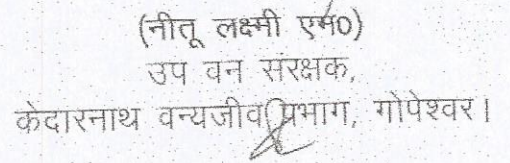 (नीतू लक्ष्मी एम०)
उप वन संरक्षक,
केदारनाथ वन्यजीव प्रभाग, गोपेश्वर।